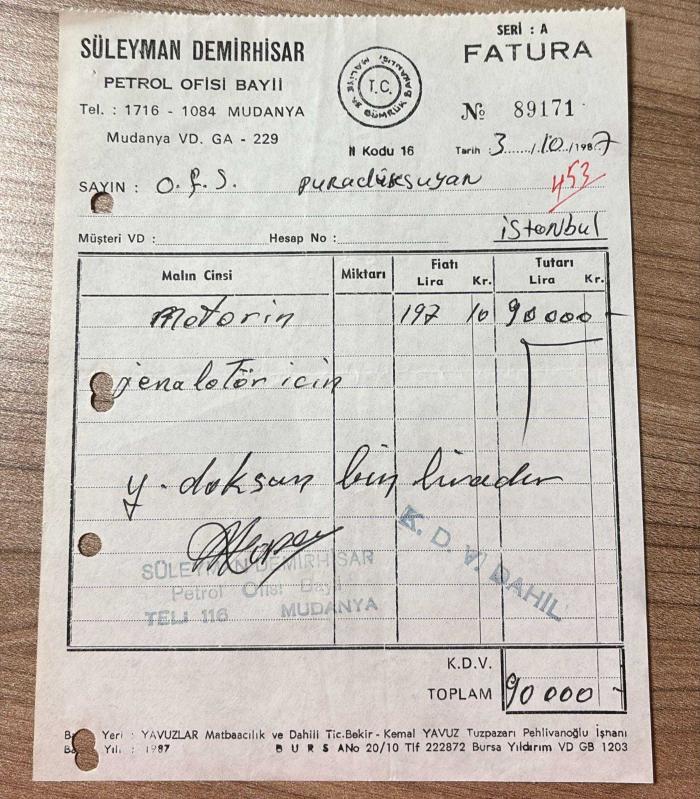 SÜLEYMAN DEMİRHİSAR
PETROL OFİSİ BAYİİ
Tel. : 1716 - 1084 MUDANYA
Mudanya VD. GA - 229
T.C.
MALİYE VE GÜMRÜK BAKANLIĞI
SERİ : A
FATURA
№ 89171
İl Kodu 16
Tarih : 3 / 10 / 1987
SAYIN : O.F.S.
453
İstanbul
Müşteri VD : Hesap No :
Malın Cinsi Miktarı Fiatı Lira Kr. Tutarı Lira Kr.
Motorin 197 10 90000 -
jenalotör icin
y. doksan bin liradır
SÜLEYMAN DEMİRHİSAR
Petrol Ofisi Bayii
TEL: 116 MUDANYA
K. D. V. DAHİL
K.D.V.
TOPLAM 90000 -
Yeri : YAVUZLAR Matbaacılık ve Dahili Tic.Bekir - Kemal YAVUZ Tuzpazarı Pehlivanoğlu İşhanı
Yılı : 1987 BURSA No 20/10 Tlf 222872 Bursa Yıldırım VD GB 1203